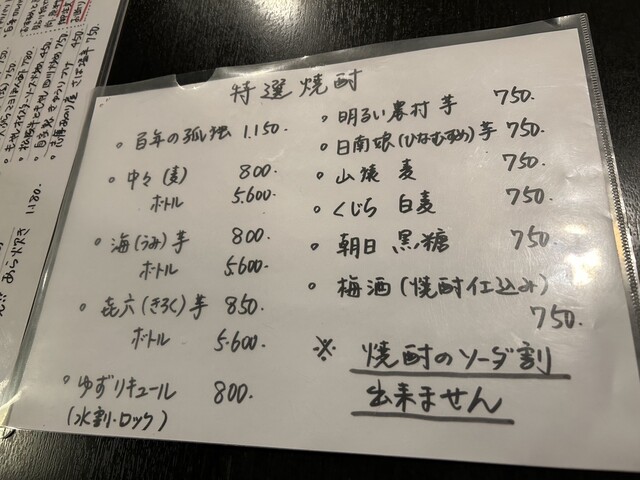 特選焼酎
・百年の孤独 1.150.
・中々(麦) 800.
ボトル 5.600.
・海(うみ)芋 800.
ボトル 5.600.
・㐂六(きろく)芋 850.
ボトル 5.600.
・ゆずリキュール 800.
(水割・ロック)
・明るい農村 芋 750.
・日南娘(ひなむすめ)芋 750.
・山猿 麦 750.
・くじら 白麦 750.
・朝日 黒糖 750.
・梅酒(焼酎仕込み)
750.
※ 焼酎のソーダ割
出来ません
あら炊き 1.180.